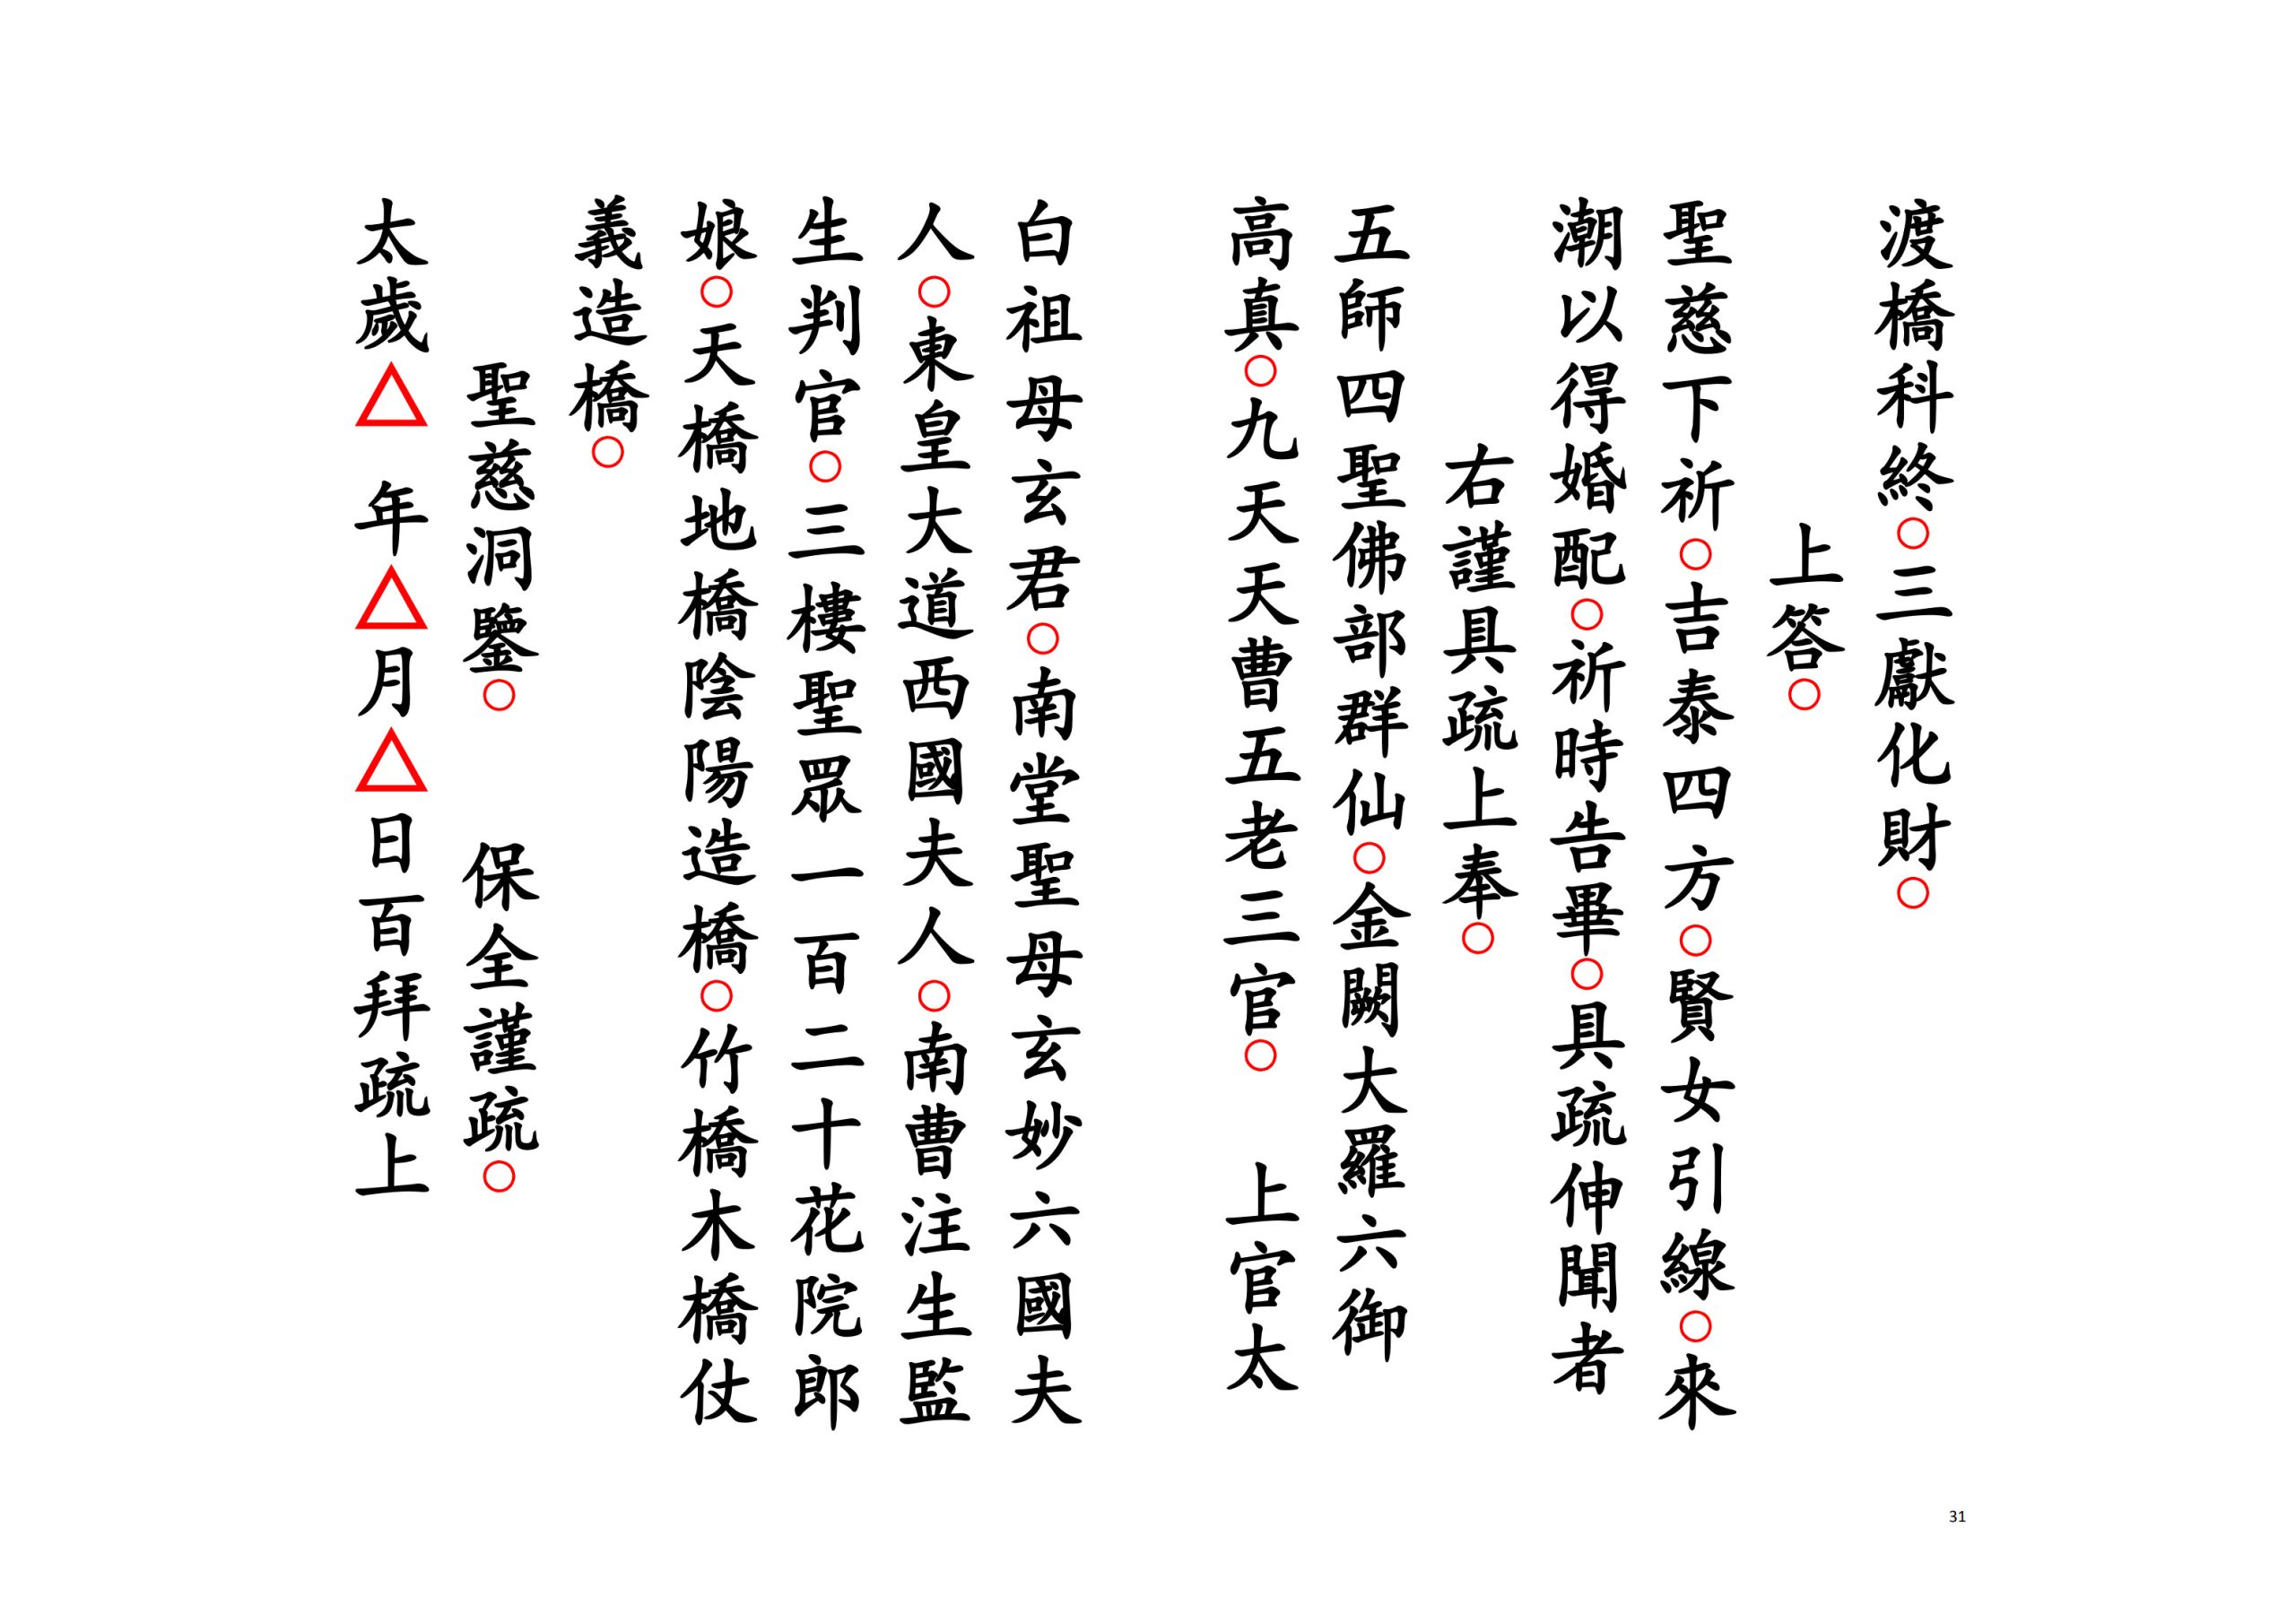 渡橋科終○三獻化財○
上答○
聖慈下祈○吉泰四方○賢女引線○來
潮以得婚配○祈時告畢○具疏伸聞者
右謹具疏上奉○
五師四聖佛部群仙○金闕大羅六御
高真○九天天曹五老三官○ 上官太
白祖母玄君○南堂聖母玄妙六國夫
人○東皇大道西國夫人○南曹注生監
生判官○三樓聖眾一百二十花院郎
娘○天橋地橋陰陽造橋○竹橋木橋仗
義造橋○
聖慈洞鑒○ 保全謹疏○
太歲△ 年△月△日百拜疏上
31